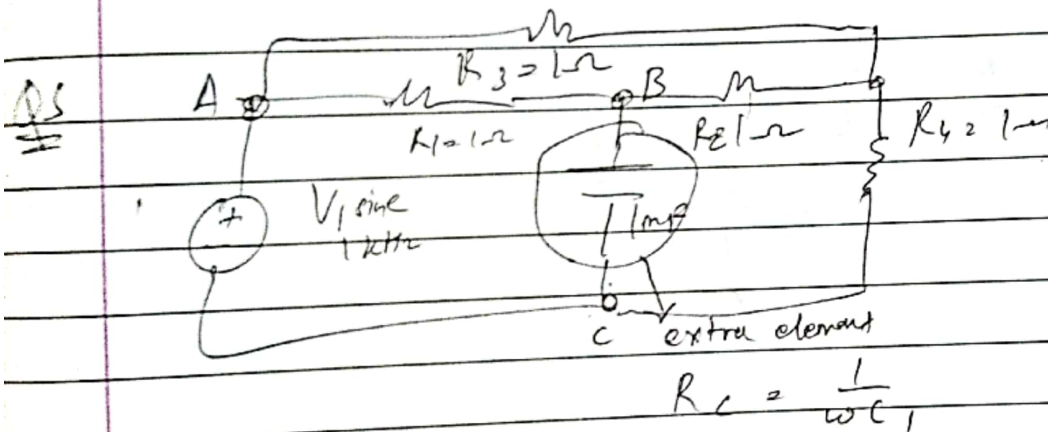 Q5
R3 = 1Ω
A
B
R1 = 1Ω
R2 1Ω
R4 = 1
V1 sine
1 kHz
+
-
1mF
C
extra element
RC = 1/ωC1